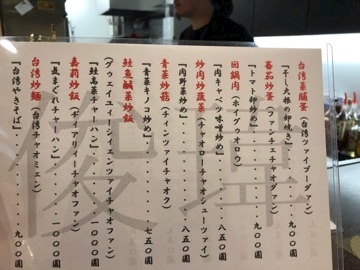 台湾菜脯蛋（台湾ツァイプーダァン）
『干し大根の卵焼き』・・・・・九〇〇圓
蕃茄炒蛋（ファンチェチャオダァン）
『トマト卵炒め』・・・・・九〇〇圓
回鍋肉（ホイグゥオロウ）
『肉キャベツ味噌炒め』・・・・九〇〇圓
炒肉炒蔬菜（チャオロウチャオシューツァイ）
『肉野菜炒め』・・・・・八五〇圓
青菜炒菇（チィンツァイチャオク）
『青菜キノコ炒め』・・・・・七五〇圓
鮭魚鹹菜炒飯
（グゥエイユィーシィエンツァァイチャオファン）
『鮭高菜チャーハン』・・・・一〇〇〇圓
嘉莉炒飯（ヂィアリィーチャオファン）
『気まぐれチャーハン』・・・一〇〇〇圓
台湾炒麺（台湾チャオミェン）
『台湾やきそば』・・・・・九〇〇圓